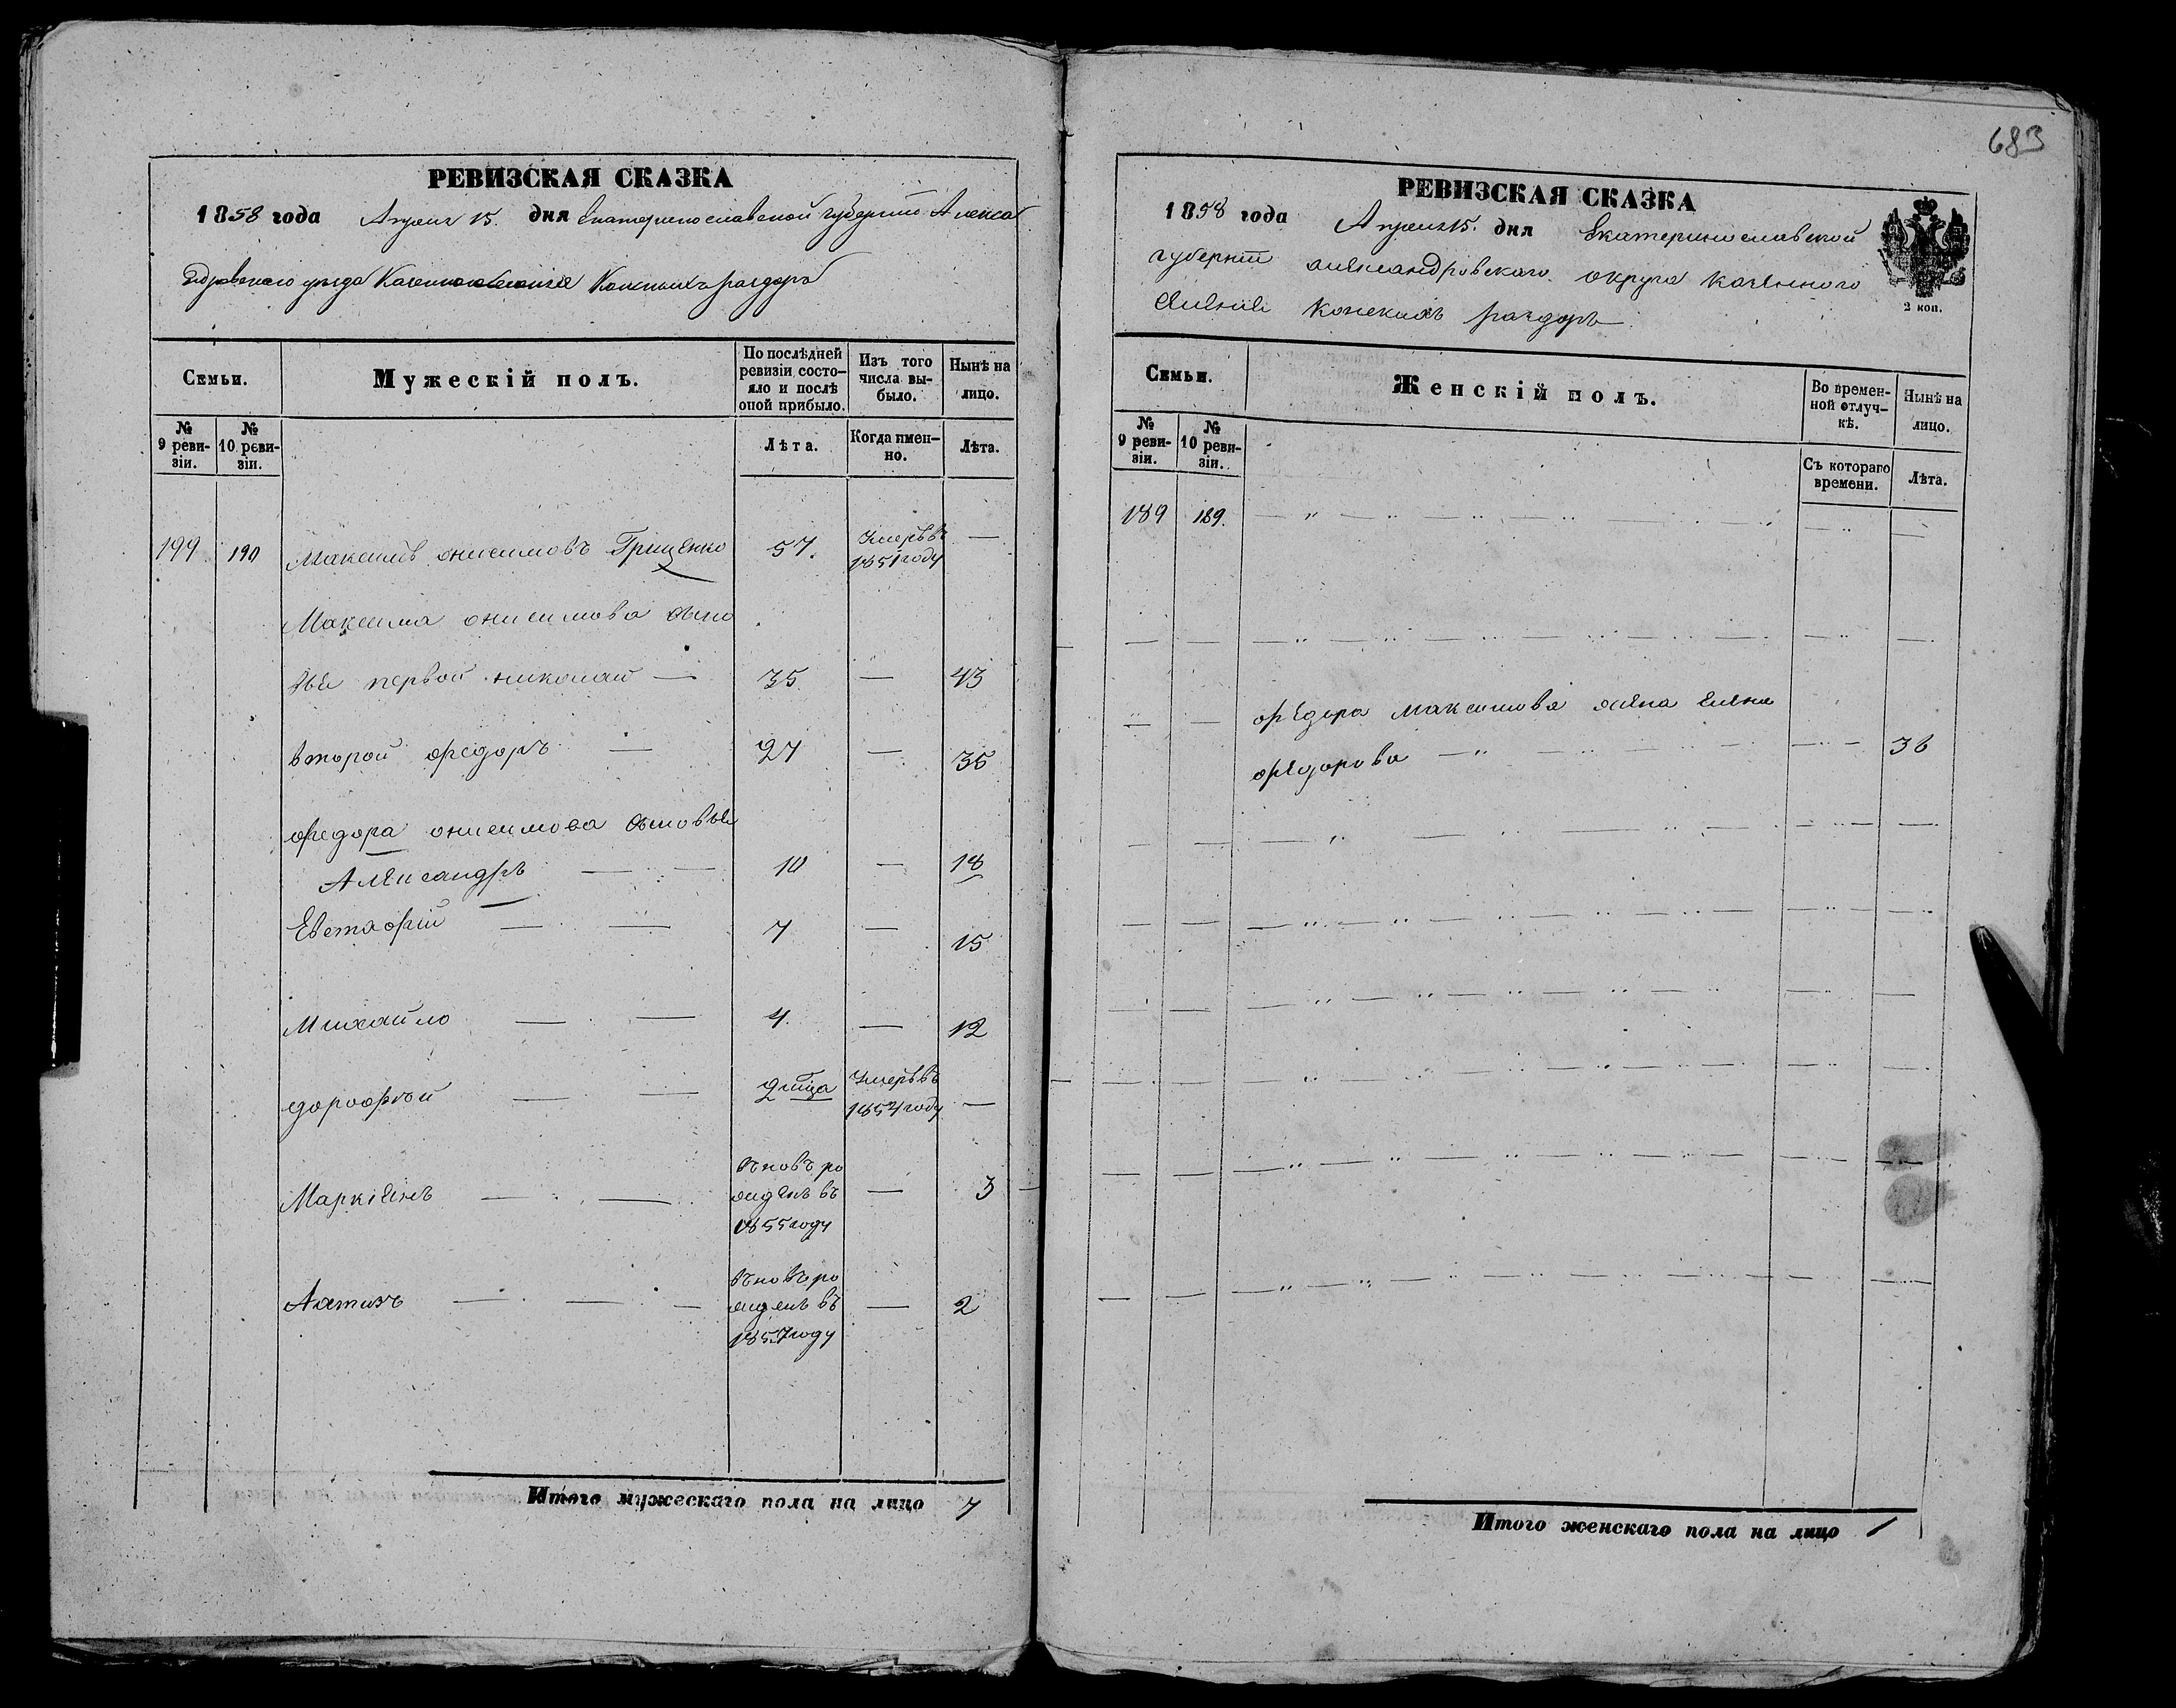 683
РЕВИЗСКАЯ СКАЗКА
1858 года Апреля 15. дня Екатеринославской губернии Алекса
ндровского уезда Казенного Конскихъ раздоръ
Семьи.
Мужескій полъ.
По послѣдней ревизіи состояло и послѣ оной прибыло.
Изъ того числа выбыло.
Нынѣ на лицо.
№ 9 ревизіи.
№ 10 ревизіи.
Лѣта.
Когда именно.
Лѣта.
199 190 Максимъ онисимовъ Грищенко 57. Умеръ въ 1851 году —
Максима онисимова сыно
вья первой николай — 35 — 43
второй федоръ — 27 — 35
федора онисимова сыновья
Александръ — — 10 — 18
Евстафій — — 7 — 15
Михайло — — 4. — 12
дорофѣй — — 2 Умеръ въ 1854 году —
Маркіянъ — — вновь рожденъ въ 1855 году — 3
— — — вновь рожденъ въ 1857 году — 2
Итого мужескаго пола на лицо 7
РЕВИЗСКАЯ СКАЗКА
1858 года Апреля 15. дня Екатеринославской
губерніи александровскаго округа казенного
селенія Конскихъ раздоръ
2 коп.
Семьи.
Женскій полъ.
Во временной отлучкѣ.
Нынѣ на лицо.
№ 9 ревизіи.
№ 10 ревизіи.
Съ котораго времени.
Лѣта.
189 189.
федора максимова жена Елена
федорова — 36
Итого женскаго пола на лицо 1